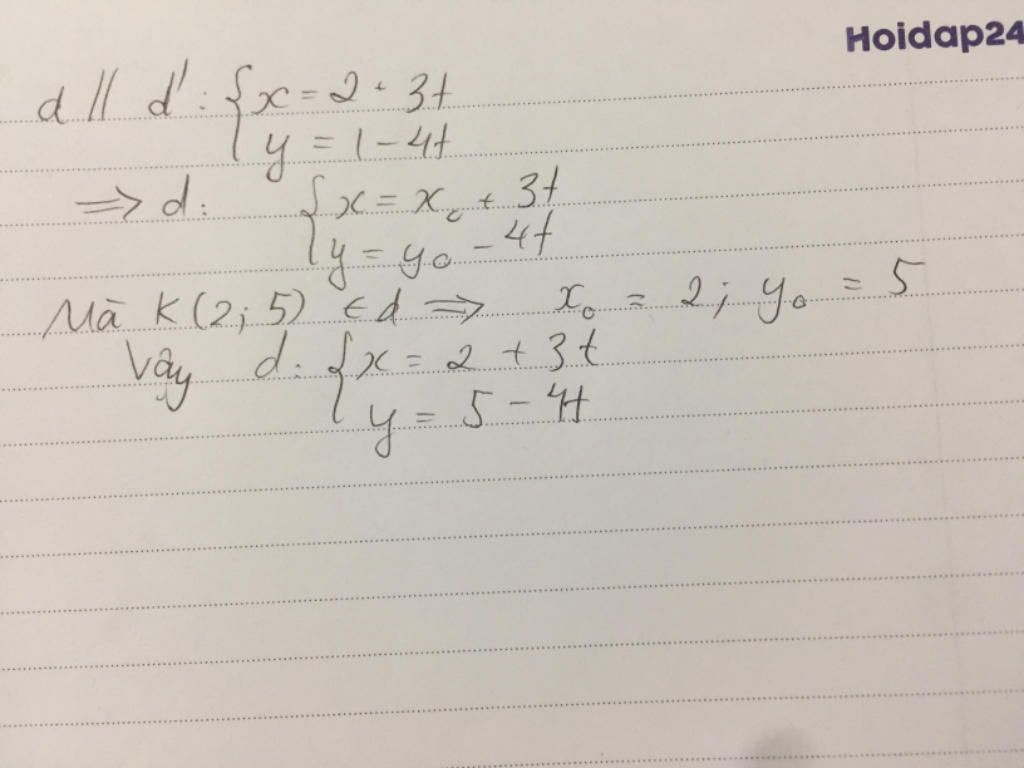 Hoidap24
d // d': { x = 2 + 3t
y = 1 - 4t
=> d: { x = x₀ + 3t
y = y₀ - 4t
Mà K(2; 5) ∈ d => x₀ = 2; y₀ = 5
Vây d: { x = 2 + 3t
y = 5 - 4t